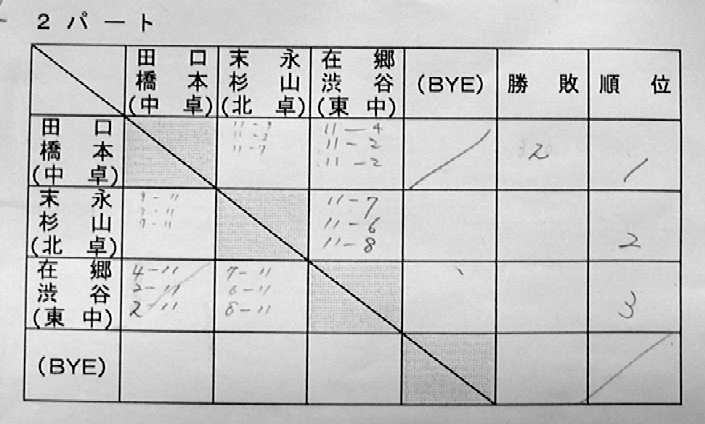 2パート
田口 末永 在郷
橋本 杉山 渋谷 (BYE) 勝敗 順位
(中卓) (北卓) (東中)
田口 11-4
橋本 11-2 2 1
(中卓) 11-7 11-2
末永 11-7
杉山 11-6
(北卓) 7-11 11-8 2
在郷 4-11 7-11
渋谷 2-11 6-11 3
(東中) 2-11 8-11
(BYE)